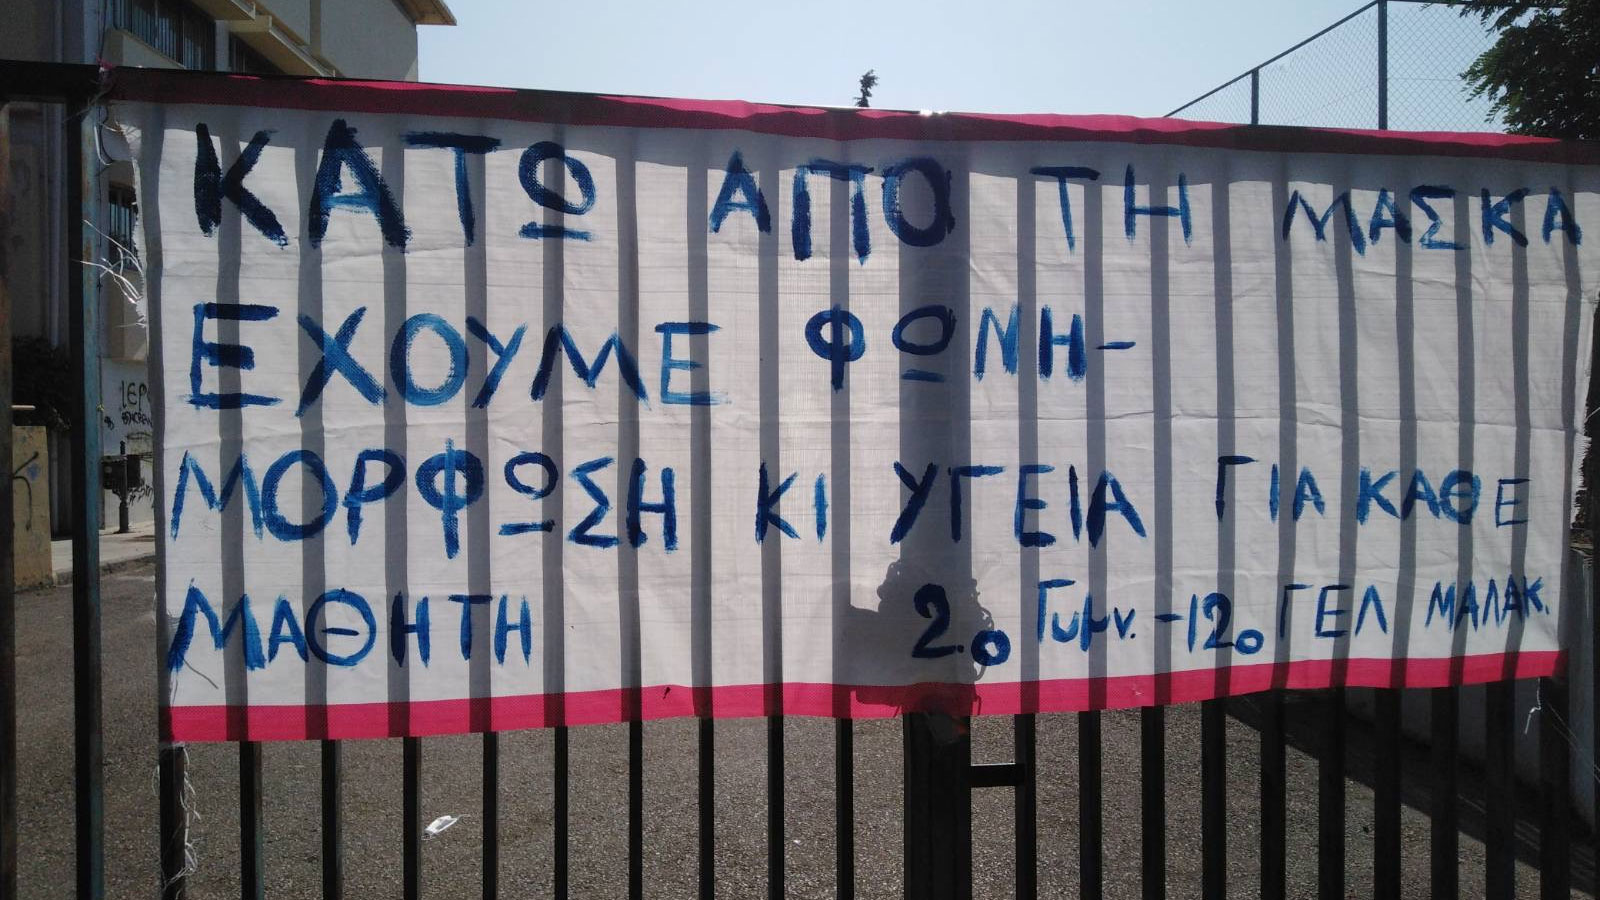 ΚΑΤΩ ΑΠΟ ΤΗ ΜΑΣΚΑ
ΕΧΟΥΜΕ ΦΩΝΗ-
ΜΟΡΦΩΣΗ ΚΙ ΥΓΕΙΑ ΓΙΑ ΚΑΘΕ
ΜΑΘΗΤΗ 2.ο Γυμν. -12ο ΓΕΛ ΜΑΛΑΚ.